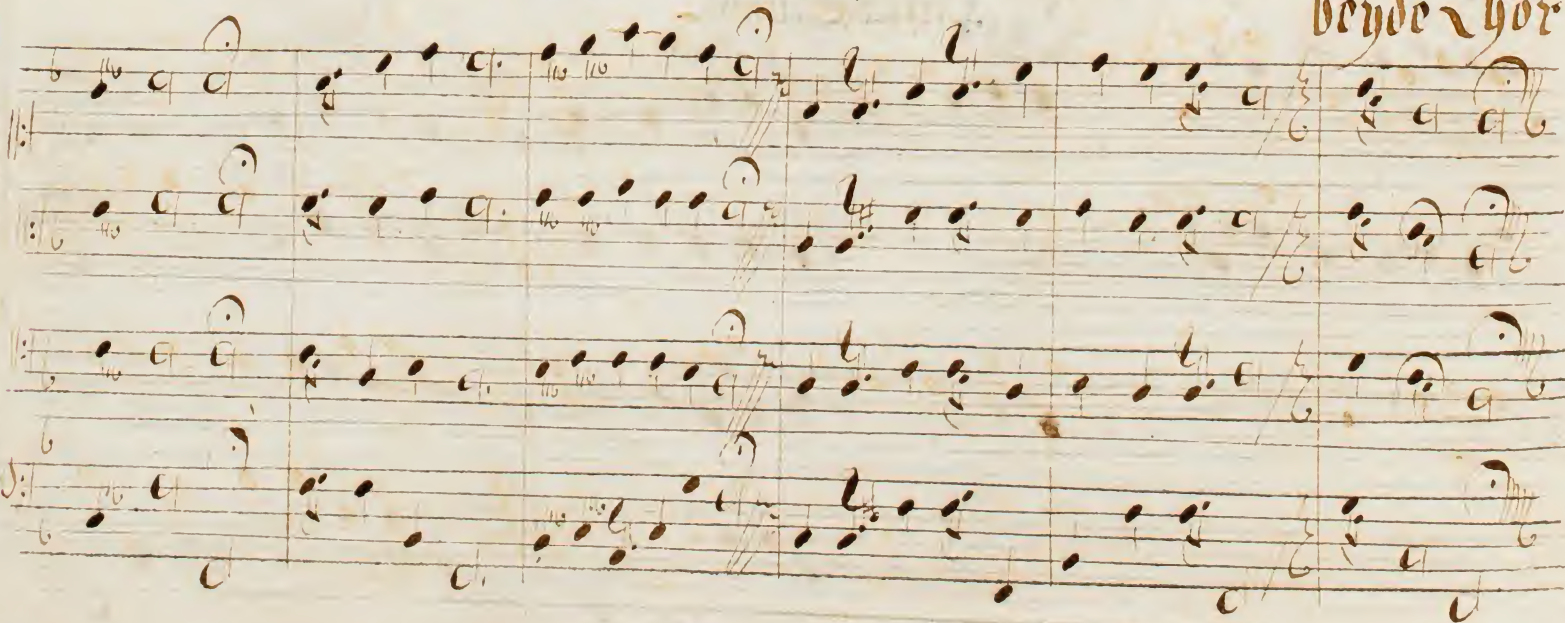 beyde Chör